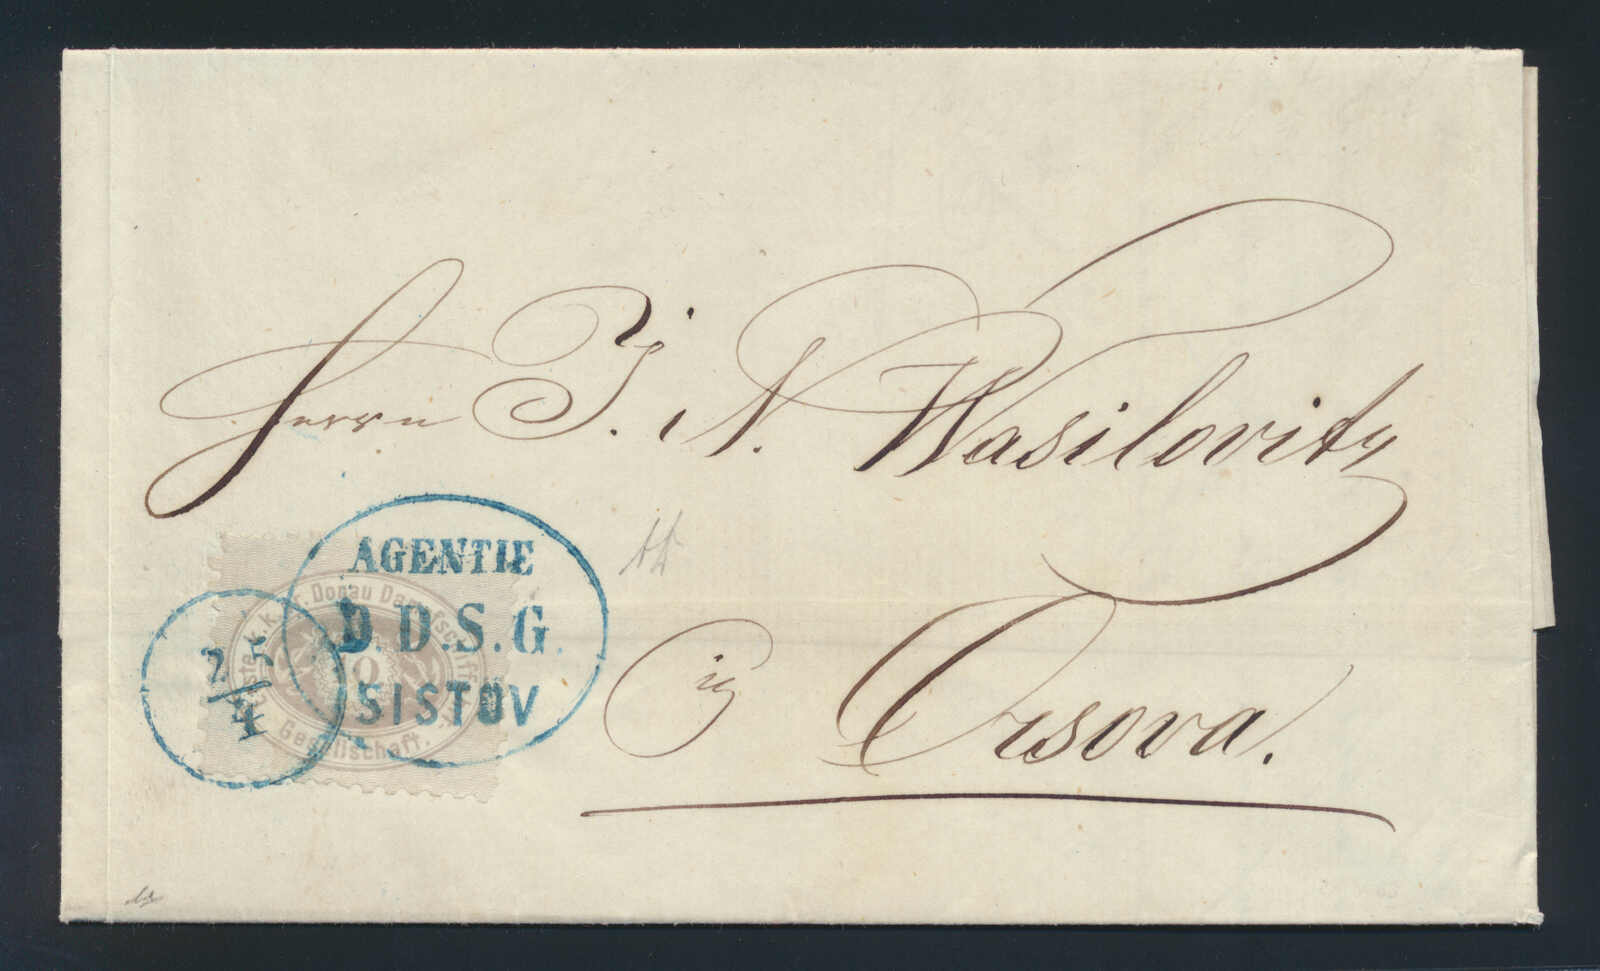 Herrn J. N. Wasilovitz
in Orsova.
AGENTIE
D.D.S.G.
SISTOV
25
4
Erste k.k. pr. Donau Dampfschifffahrt
Gesellschaft.